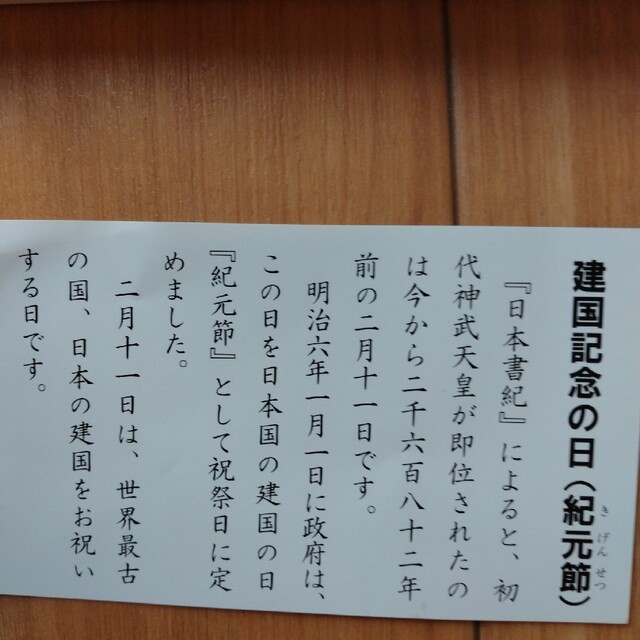 建国記念の日（紀元節）
きげんせつ
『日本書紀』によると、初
代神武天皇が即位されたの
は今から二千六百八十二年
前の二月十一日です。
明治六年一月一日に政府は、
この日を日本国の建国の日
『紀元節』として祝祭日に定
めました。
二月十一日は、世界最古
の国、日本の建国をお祝い
する日です。